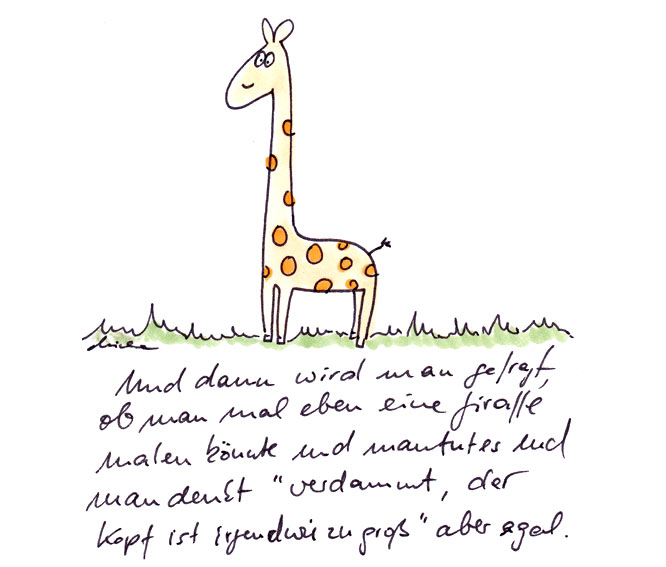 Und dann wird man gefragt,
ob man mal eben eine giraffe
malen könnte und man tut es und
man denkt "verdammt, der
Kopf ist irgendwi zu groß" aber egal.